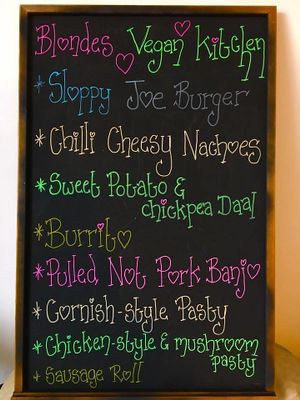 Blondes Vegan Kitchen
*Sloppy Joe Burger
*Chilli Cheesy Nachoes
*Sweet Potato &
chickpea Daal
*Burrito
*Pulled Not Pork Banjo
*Cornish-style Pasty
*Chicken-style & mushroom
pasty
*Sausage Roll